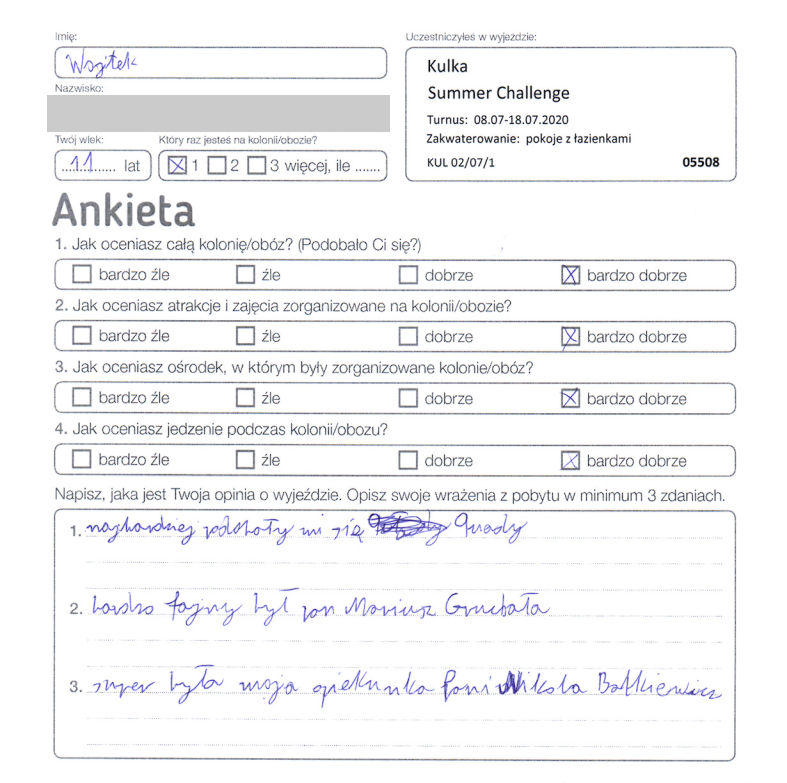 Imię:
Wojtek
Uczestniczyłeś w wyjeździe:
Kulka
Summer Challenge
Turnus: 08.07-18.07.2020
Zakwaterowanie: pokoje z łazienkami
KUL 02/07/1 05508
Nazwisko:
Twój wiek:
11 lat
Który raz jesteś na kolonii/obozie?
1 2 3 więcej, ile .......
Ankieta
1. Jak oceniasz całą kolonię/obóz? (Podobało Ci się?)
bardzo źle źle dobrze bardzo dobrze
2. Jak oceniasz atrakcje i zajęcia zorganizowane na kolonii/obozie?
bardzo źle źle dobrze bardzo dobrze
3. Jak oceniasz ośrodek, w którym były zorganizowane kolonie/obóz?
bardzo źle źle dobrze bardzo dobrze
4. Jak oceniasz jedzenie podczas kolonii/obozu?
bardzo źle źle dobrze bardzo dobrze
Napisz, jaka jest Twoja opinia o wyjeździe. Opisz swoje wrażenia z pobytu w minimum 3 zdaniach.
1. najbardziej podobały mi się Quady
2. bardzo fajny był pan Mariusz
3. super była moja opiekunka Pani Nikola